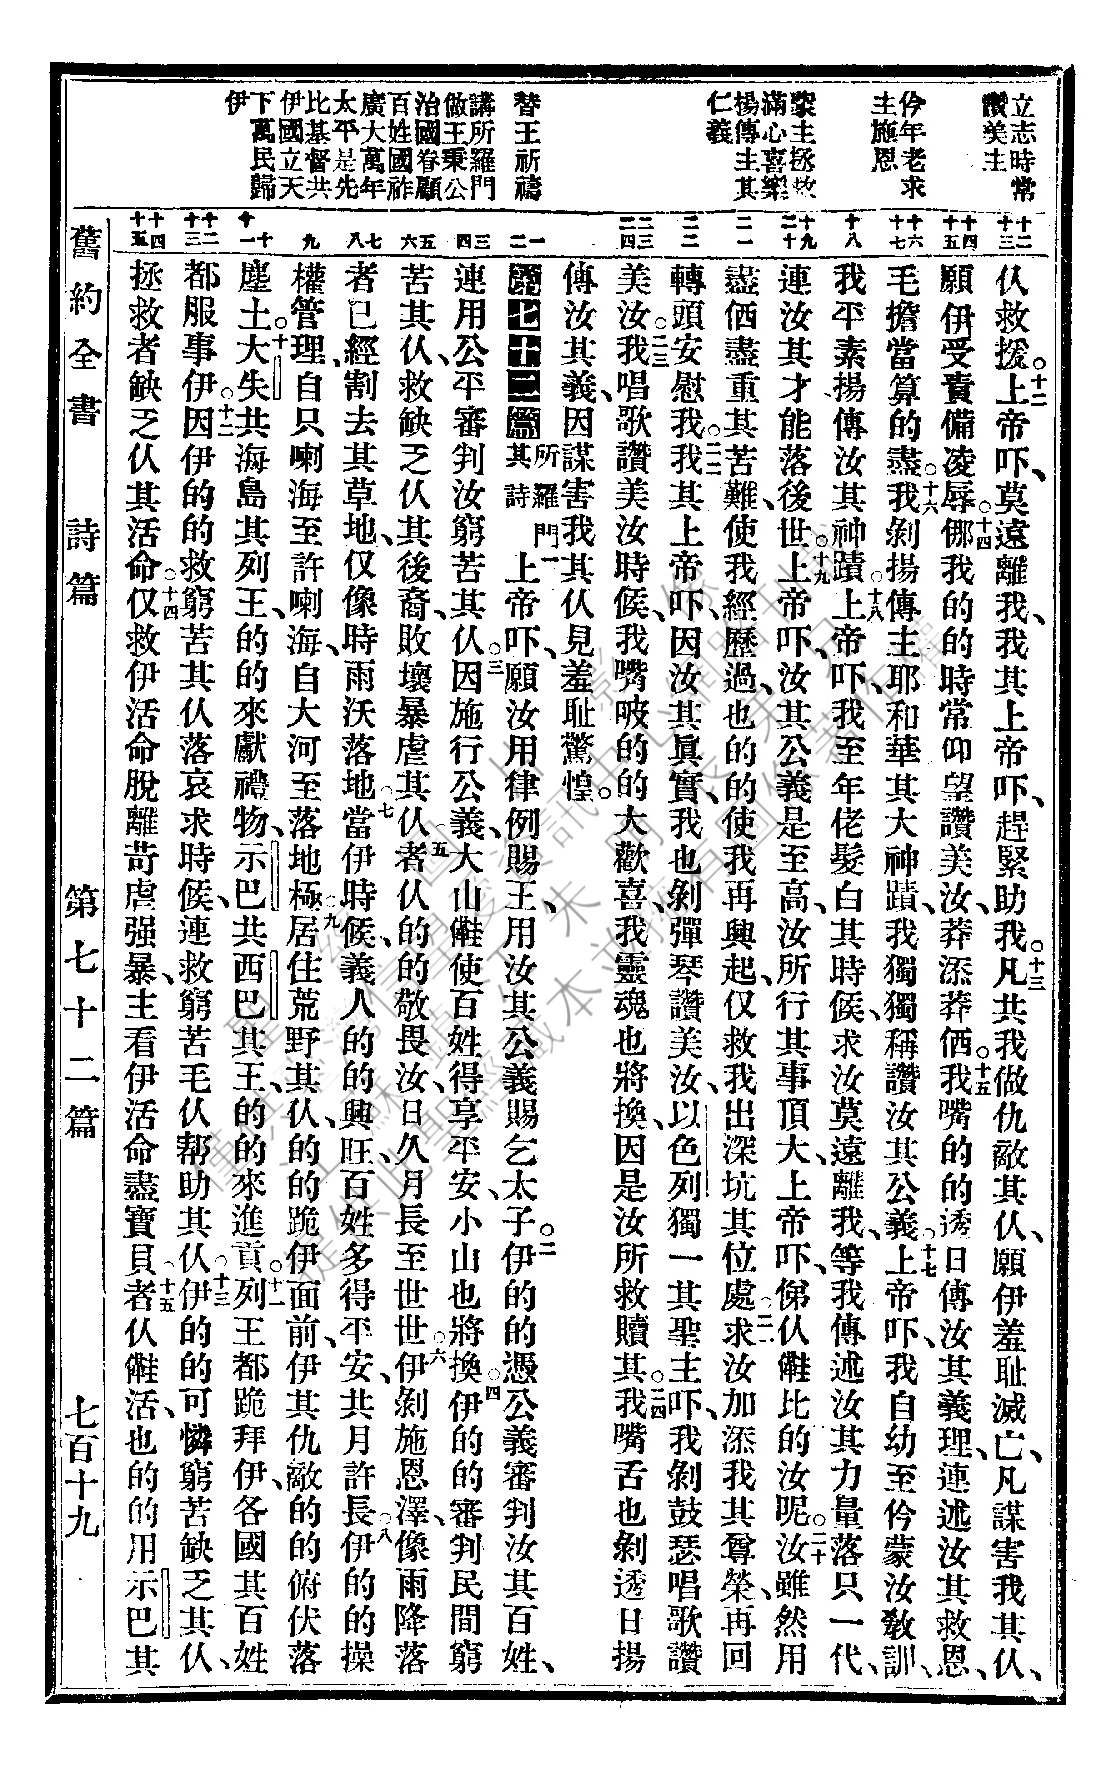 立志時常
讚美主
伱年老求
主施恩
蒙主拯救
滿心喜樂
揚傳主其
仁義
替王祈禱
講所羅門
做王秉公
治國眷顧
百姓國祚
廣大萬年
太平是先
比基督共
伊國立天
下萬民歸
伊
十二
十三
十四
十五
十六
十七
十八
十九
二十
二一
二二
二三
二四
一
二
三
四
五
六
七
八
九
十
十一
十二
十三
十四
十五
仈救援。十二上帝吓、莫遠離我、我其上帝吓、趕緊助我。十三凡共我做仇敵其仈、願伊羞耻滅亡、凡謀害我其仈、
願伊受責備凌辱。十四㑚我的的時常仰望讚美汝、莽添莽価。十五我嘴的的透日傳汝其義理、連述汝其救恩、
毛擔當算的盡。十六我剝揚傳主耶和華其大神蹟、我獨獨稱讚汝其公義。十七上帝吓、我自幼至伱蒙汝敎訓、
我平素揚傳汝其神蹟。十八上帝吓、我至年佬髮白其時候、求汝莫遠離我、等我傳述汝其力量落只一代、
連汝其才能落後世。十九上帝吓、汝其公義是至高、汝所行其事頂大、上帝吓、俤仈𣍐比的汝呢。二十汝雖然用
盡価盡重其苦難、使我經歷過、也的的使我再興起、仅救我出深坑其位處。二一求汝加添我其尊榮、再回
轉頭安慰我。二二我其上帝吓、因汝其眞實、我也剝彈琴讚美汝、以色列獨一其聖主吓、我剝鼓瑟唱歌讚
美汝。二三我唱歌讚美汝時候、我嘴唆的的大歡喜、我靈魂也將換、因是汝所救贖其。二四我嘴舌也剝透日揚
傳汝其義、因謀害我其仈見羞耻驚惶。
第七十二篇 所羅門其詩 一上帝吓、願汝用律例賜王、用汝其公義賜乞太子。二伊的的憑公義審判汝其百姓、
連用公平審判汝窮苦其仈。三因施行公義、大山𣍐使百姓得享平安、小山也將換。四伊的的審判民間窮
苦其仈、救缺乏仈其後裔、敗壞暴虐其仈。五者仈的的敬畏汝、日久月長至世世。六伊剝施恩澤、像雨降落
者已經割去其草地、仅像時雨沃落地。七當伊時候、義人的的興旺、百姓多得平安、共月許長。八伊的的操
權管理、自只喇海至許喇海、自大河至落地極。九居住荒野其仈、的的跪伊面前、伊其仇敵的的俯伏落
塵土。十大失共海島其列王、的的來獻禮物、示巴共西巴其王、的的來進貢。十一列王都跪拜伊、各國其百姓
都服事伊。十二因伊的的救窮苦其仈落哀求時候、連救窮苦毛仈帮助其仈。十三伊的的可憐窮苦缺乏其仈、
拯救者缺乏仈其活命。十四仅救伊活命脫離苛虐强暴、主看伊活命盡寶貝。十五者仈𣍐活、也的的用示巴其
舊約全書　詩篇　第七十二篇　七百十九